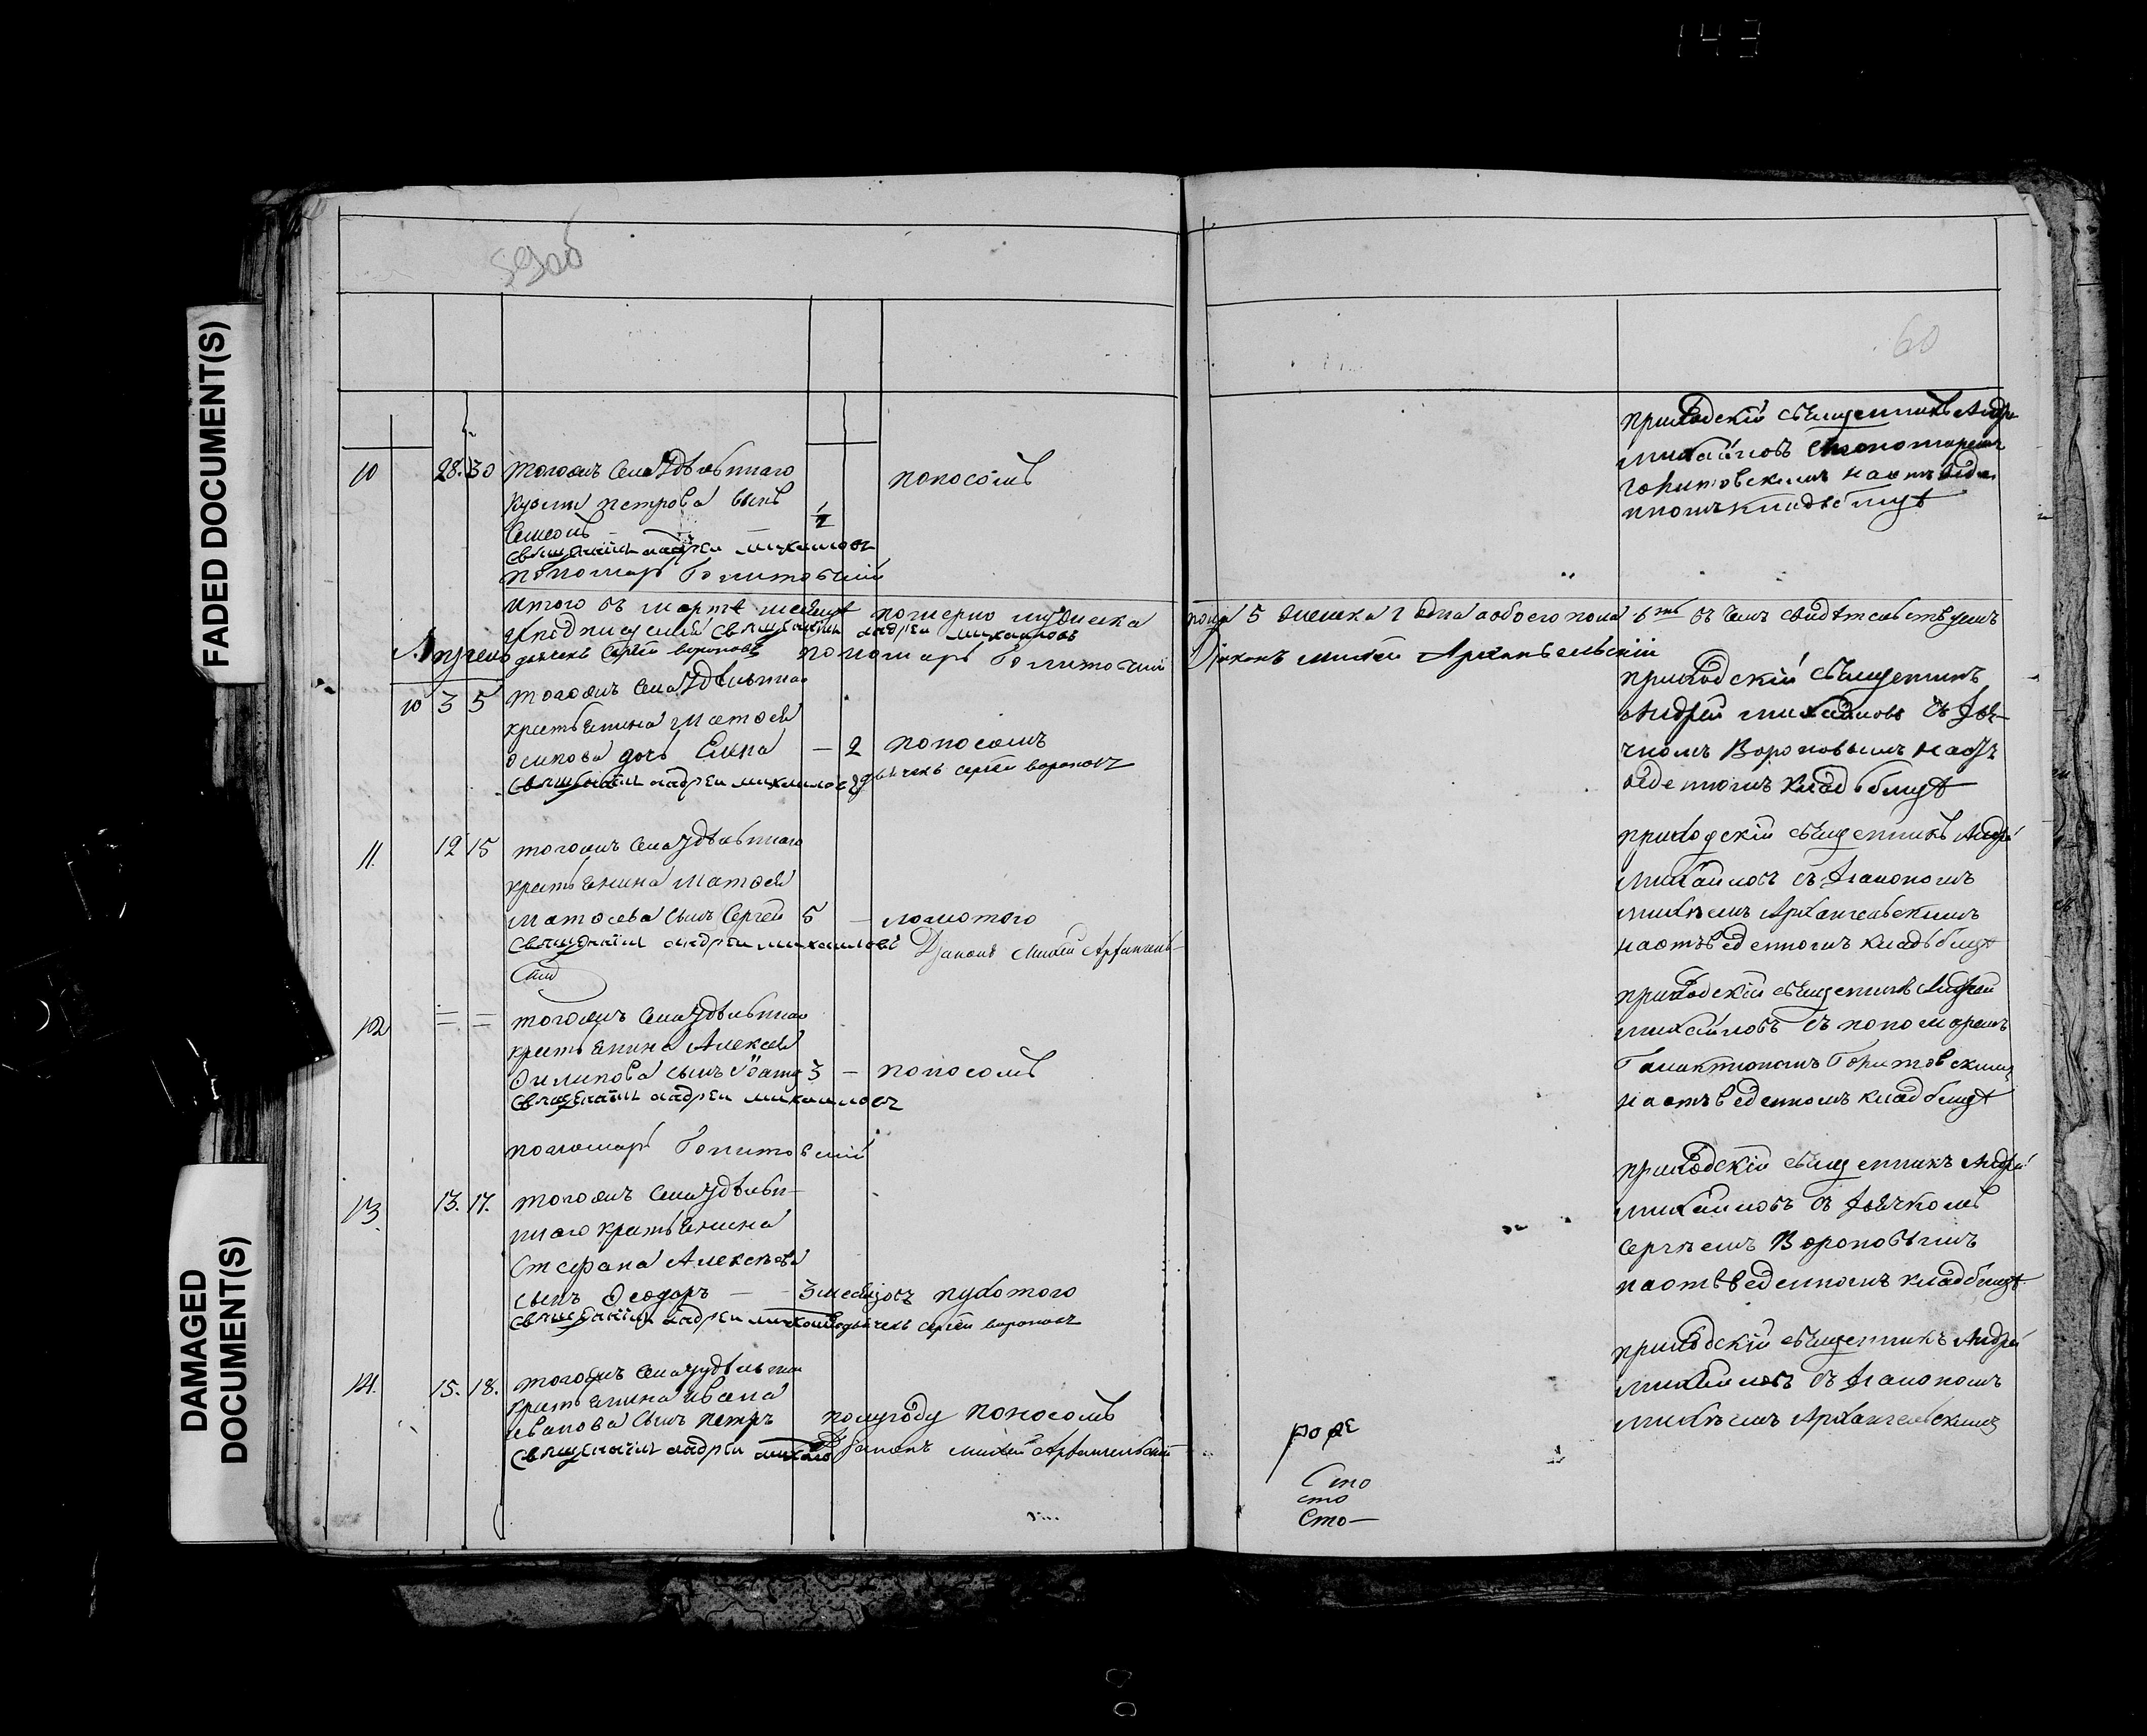 143
59об
60
FADED DOCUMENT(S)
DAMAGED
DOCUMENT(S)
10 28. 30 тогожъ села удѣльнаго
кузмы петрова сынъ
Симеонъ 1/2 поносомъ
священникъ андрей михаиловъ
пономарь
приходскій священникъ Андрей
михайловъ съ пономаремъ
на отведен
номъ кладбищѣ
итого въ мартѣ месяцѣ померло мужеска пола 5 женска 1 а обоего пола 6ть въ чемъ свидѣтельствуемъ
и подписуемся священникъ андрей михаиловъ
дьячекъ сергей вороновъ пономарь Діаконъ михей Архангельскій
Апрель
10 3 5 тогожъ села удѣльнаго
крестьянина матѳея
осипова дочь Елена — 2 поносомъ
священникъ андрей михаиловъ дьячекъ сергей вороновъ
приходскій священникъ
Андрей михайловъ съ дья-
чкомъ Вороновымъ на от
веденномъ кладбищѣ
11. 12 15 тогожъ села удѣльнаго
крестьянина матѳея
матѳеева сынъ Сергей 5 — ломотою
священникъ андрей михаиловъ Діаконъ Михей Архангель-
скій
приходскій священникъ Андрей
михайловъ съ діакономъ
михѣемъ Архангельскимъ
на отъведенномъ кладбищѣ
12 = = тогожъ села удѣльнаго
крестьянина Алексея
филипова сынъ 3 — поносомъ
священникъ андрей михаиловъ
пономарь
приходскій священникъ Андрей
михайловъ съ пономаремъ
на отъведенномъ кладбищѣ
13. 13. 17. тогожъ села удѣльн-
наго крестьянина
Стефана Алексѣева
сынъ Ѳеодоръ — 3 месяцовъ
священникъ андрей михаиловъ дьячекъ сергей вороновъ
приходскій священникъ Андрей
михайловъ съ дьячкомъ
сергѣемъ Вороновымъ
на отъведенномъ кладбищѣ
14. 15. 18. тогожъ села удѣльнаго
крестьянина ивана
иванова сынъ петръ полугоду поносомъ
священникъ андрей михаило Діаконъ михей Архангельскій
приходскій священникъ Андрей
михайловъ съ діакономъ
михѣемъ Архангельскимъ
Сто
сто
Сто—